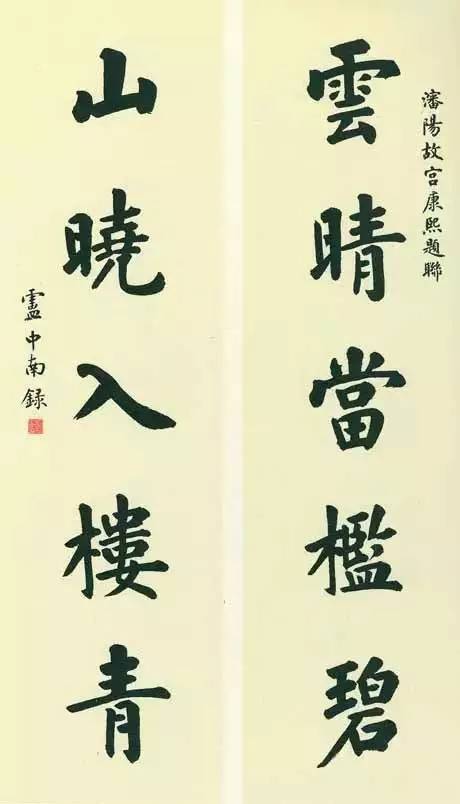 瀋陽故宮康熙題聯
雲晴當檻碧
山曉入樓青
盧中南錄